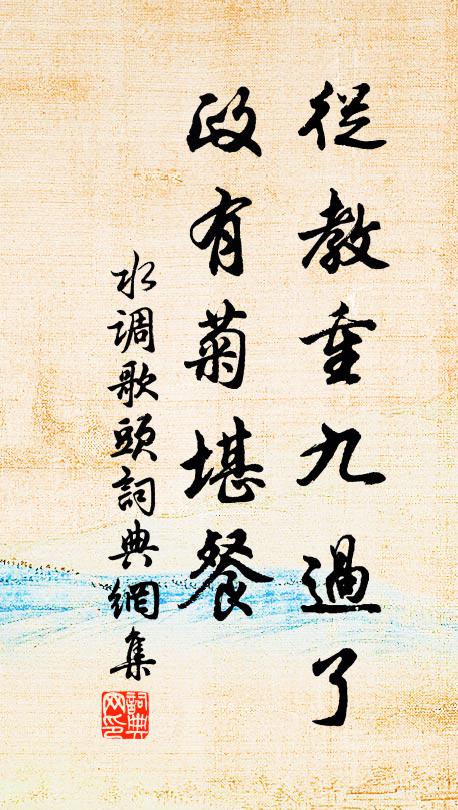 從教重九過了
政有菊堪餐
水調歌頭詞典網集
詞典
网印